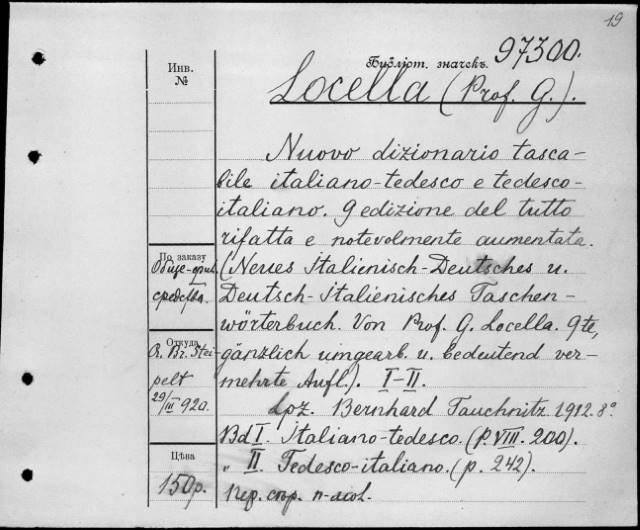 19
Библіот. значекъ. 97300.
Locella (Prof. G.).
Инв.
№
Nuovo dizionario tasca-
bile italiano-tedesco e tedesco-
italiano. 9 edizione del tutto
rifatta e notevolmente aumentata.
(Neues Italienisch-Deutsches u.
Deutsch-Italienisches Taschen-
wörterbuch. Von Prof. G. Locella. 9te,
gänzlich umgearb. u. bedeutend ver-
mehrte Aufl.). I-II.
Lpz. Bernhard Tauchnitz. 1912. 8°
Bd I. Italiano-tedesco. (p. VIII. 200).
„ II. Tedesco-italiano. (p. 242).
По заказу
средства.
Откуда
R. Br. Stei-
pelt
29/III 920.
Цѣна
150р.